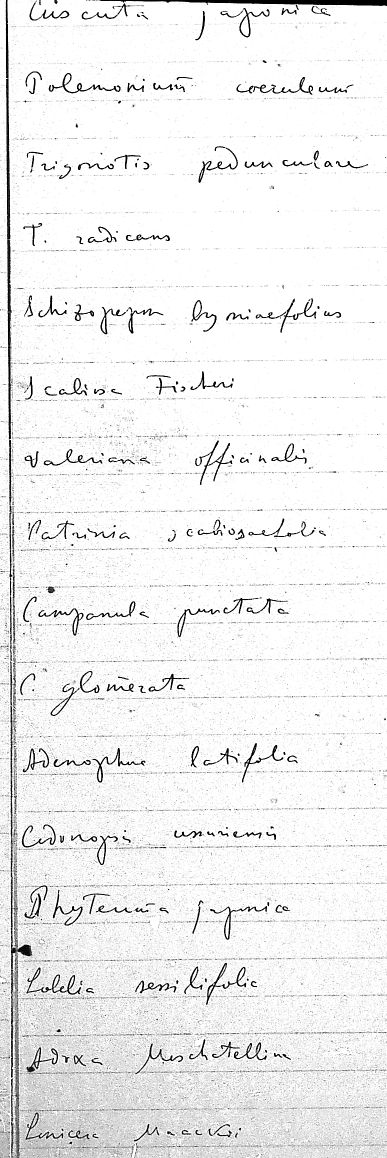 Cuscuta japonica
Polemonium coeruleum
Trigonotis pedunculare
T. radicans
Schizopepon bryoniaefolius
Scabiosa Fischeri
Valeriana officinalis
Patrinia scabiosaefolia
Campanula punctata
C. glomerata
Adenophora latifolia
Codonopsis ussuriensis
Phyteuma japonica
Lobelia sessilifolia
Adoxa Moschatellina
Lonicera Maackii